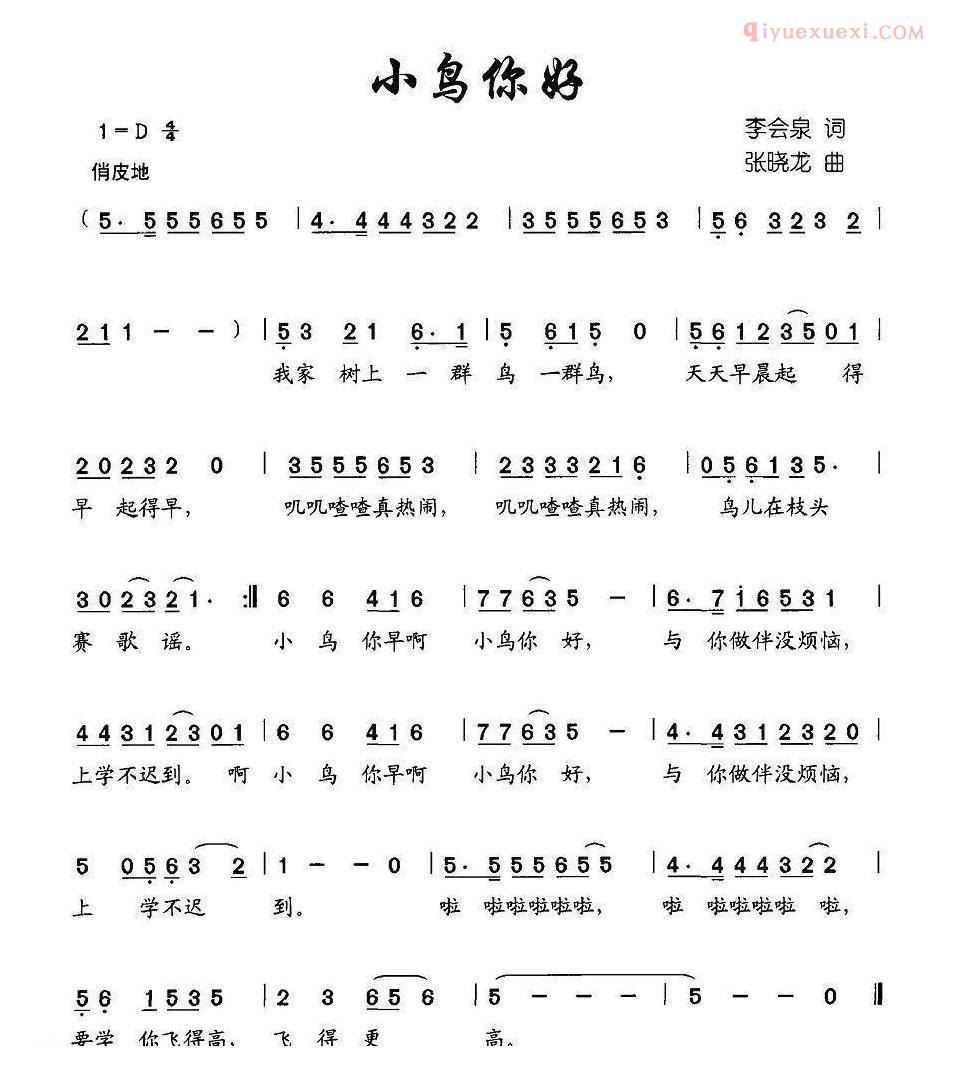 qiyuexuexi.COM
小鸟你好
1=D 4/4
李会泉 词
俏皮地
张晓龙 曲
(5. 5 5 5 6 5 5 | 4. 4 4 4 3 2 2 | 3 5 5 5 6 5 3 | 5 6 3 2 3 2 |
2 1 1 - - ) | 5 3 2 1 6. 1 | 5 6 1 5 0 | 5 6 1 2 3 5 0 1 |
我家 树上 一 群 鸟 一群鸟, 天天早晨起 得
2 0 2 3 2 0 | 3 5 5 5 6 5 3 | 2 3 3 3 2 1 6 | 0 5 6 1 3 5. |
早 起得早, 叽叽喳喳真热闹, 叽叽喳喳真热闹, 鸟儿在枝头
3 0 2 3 2 1. :|| 6 6 4 1 6 | 7 7 6 3 5 - | 6. 7 i 6 5 3 1 |
赛 歌 谣。 小 鸟 你早啊 小鸟你 好, 与 你做伴没烦恼,
4 4 3 1 2 3 0 1 | 6 6 4 1 6 | 7 7 6 3 5 - | 4. 4 3 1 2 3 2 0 |
上学不迟到。 啊 小 鸟 你早啊 小鸟你 好, 与 你做伴没烦恼,
5 0 5 6 3 2 | 1 - - 0 | 5. 5 5 5 6 5 5 | 4. 4 4 4 3 2 2 |
上 学不迟 到。 啦 啦啦啦啦啦, 啦 啦啦啦啦 啦,
5 6 1 5 3 5 | 2 3 6 5 6 | 5 - - - | 5 - - 0 ||
要学 你飞得高, 飞 得 更 高。